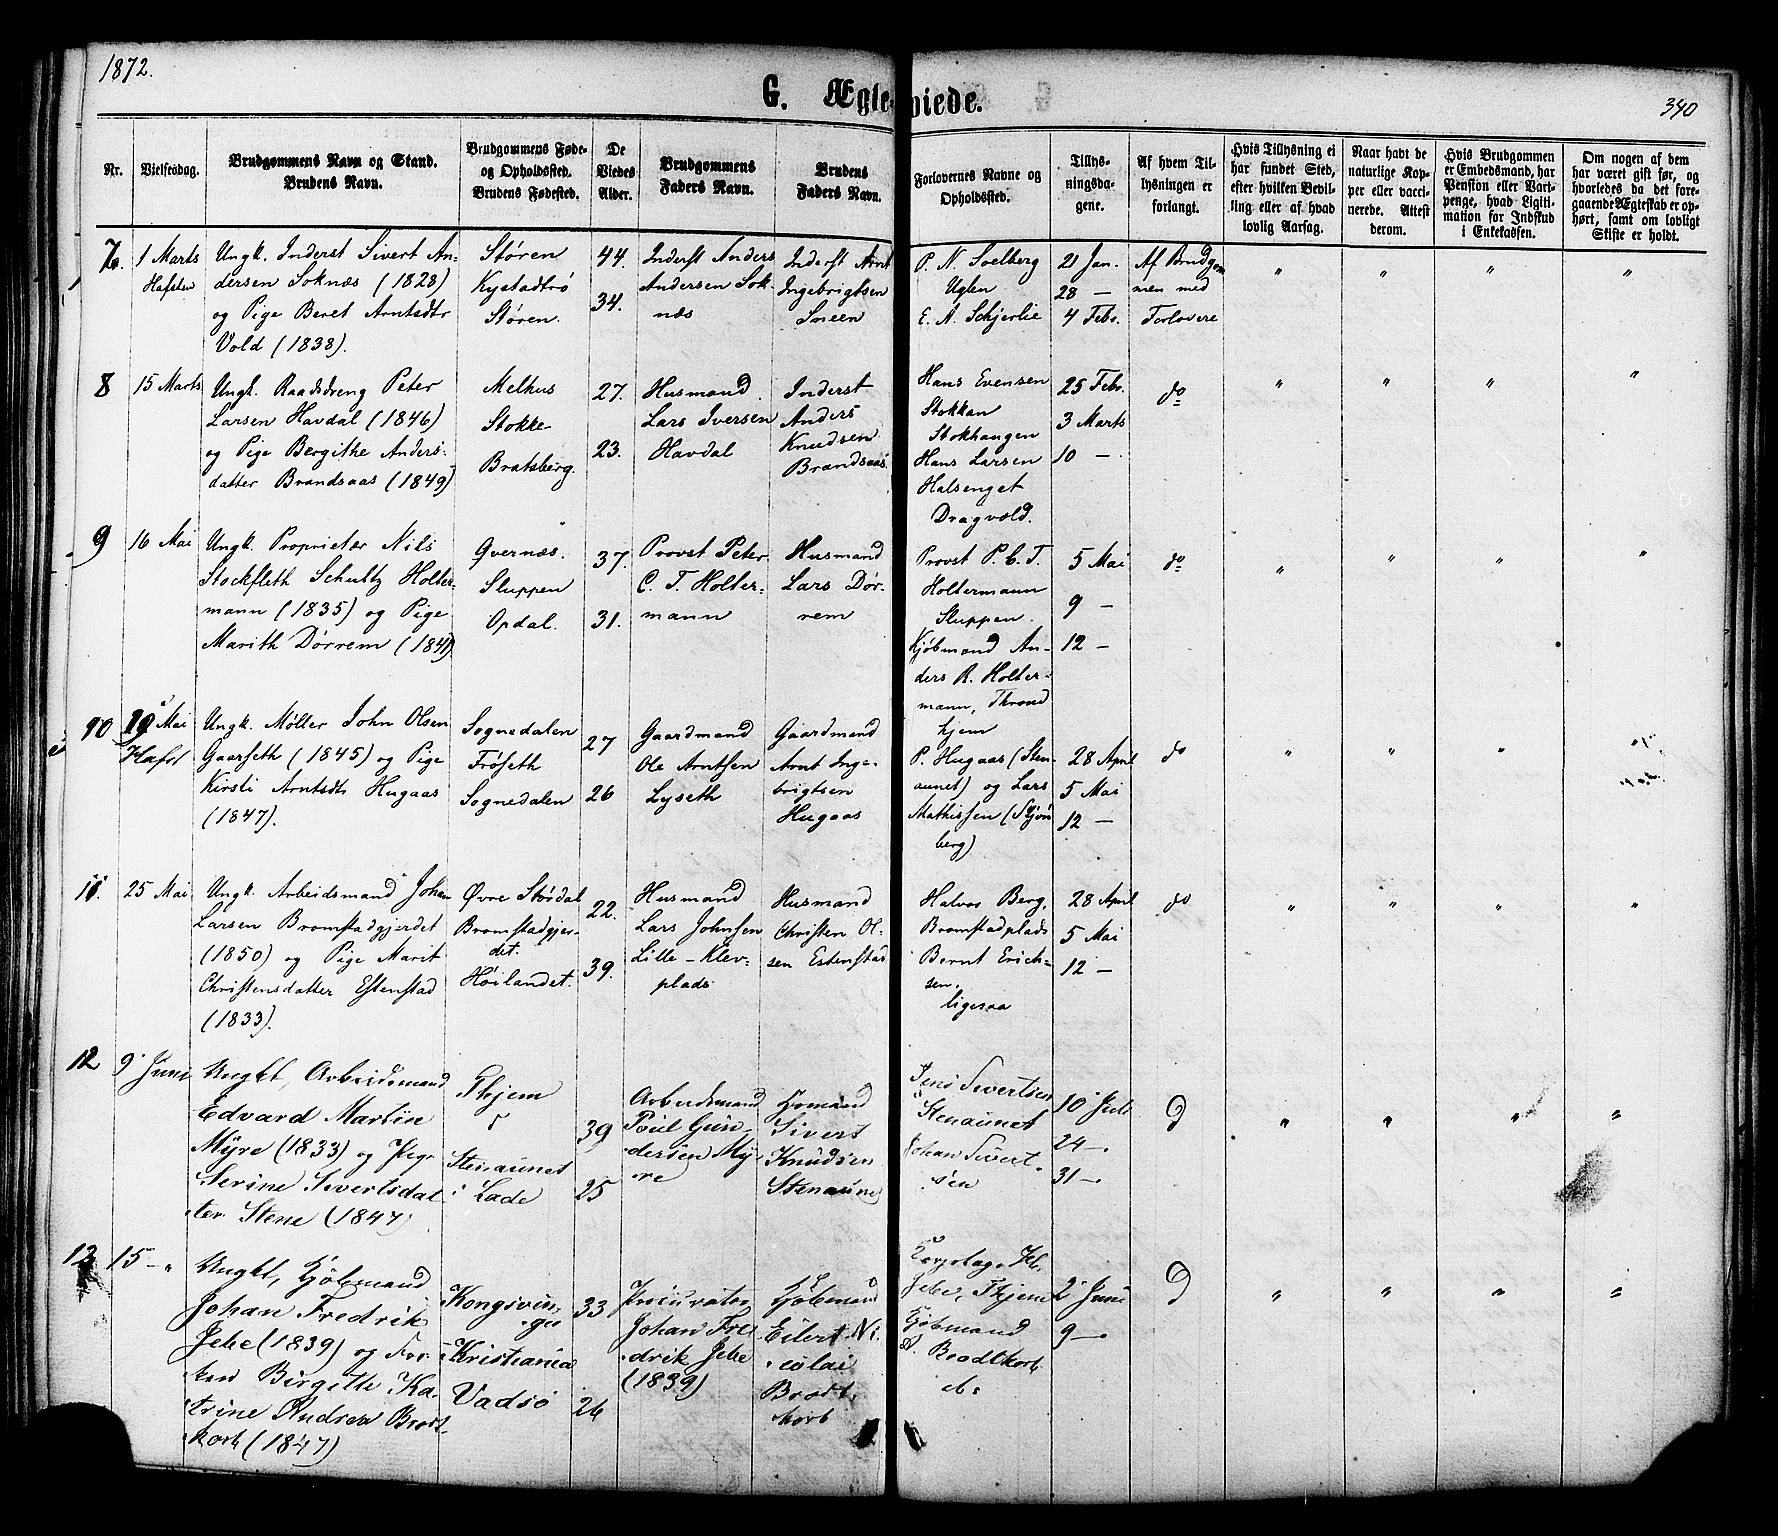 1872.
G. Ægteviede.
340
Nr.
Vielsesdag.
Brudgommens Navn og Stand.
Brudens Navn.
Brudgommens Føde-
og Opholdssted.
Brudens Fødested.
De
Viedes
Alder.
Brudgommens
Faders Navn.
Brudens
Faders Navn.
Forlovernes Navne og
Opholdssted.
Tillys-
ningsda-
gene.
Af hvem Til-
lysningen er
forlangt.
Hvis Tillysning ei
har fundet Sted,
efter hvilken Bevil-
ling eller af hvad
lovlig Aarsag.
Naar havt de
naturlige Kop-
per eller vacci-
nerede. Attest
derom.
Hvis Brudgommen
er Embedsmand, har
Pension eller Vart-
penge, hvad Ligiti-
mation for Indskud
i Enkekassen.
Om nogen af dem
har været gift før, og
hvorledes da det fore-
gaaende Ægteskab er op-
hørt, samt om lovligt
Skifte er holdt.
7.
1 Marts
Hafsten
Ungk. Inderst Sivert An-
dersen Soknæs (1828)
og Pige Beret Arntsdtr
Vold (1838).
Støren
Kystadtrø
Støren.
44.
34.
Inderst Anders
Andersen Sok-
næs
Inderst Arnt
Ingebrigtsen
Sneen
P. N. Solberg
Uglen
E. A. Schjerlie
21 Jan.
28 —
4 Febr.
Af Brudgom
men med
Forlovere
" " " "
8
15 Marts
Ungk. Raadsdreng Peter
Larsen Havdal (1846)
og Pige Bergithe Anders-
datter Brandsaas (1849)
Melhus
Stokke
Bratsberg.
27.
23.
Husmand
Lars Iversen
Havdal
Inderst
Anders
Knudsen
Brandsaas.
Hans Evensen
Stokkan
Stokhaugen
Hans Larsen
Halsenget
Dragvold.
25 Febr.
3 Marts
10 —
do
" " " "
9
16 Mai
Ungk. Proprietær Nils
Stockfleth Schultz Holter-
mann (1835) og Pige
Marith Dørrem (1841)
Qvernæs.
Sluppen
Opdal.
37.
31.
Provst Peter
C. T. Holter-
mann
Husmand
Lars Dør-
rem
Provst P. C. T.
Holtermann
Sluppen.
Kjøbmand An-
ders R. Holter-
mann, Thrond
hjem
5 Mai
9 —
12 —
do
" " " "
10
19 Mai
Hafst
Ungk. Møller John Olsen
Gaarseth (1845) og Pige
Kirsti Arntsdtr Hugaas
(1847).
Sognedalen
Frøseth
Sognedalen
27
26
Gaardmand
Ole Arntsen
Lyseth
Gaardmand
Arnt Inge-
brigtsen
Hugaas
P. Hugaas (Sten-
aunet) og Lars
Mathissen (Stjøn
berg)
28 April
5 Mai
12 —
do
" " "
11.
25 Mai
Ungk. Arbeidsmand Johan
Larsen Bromstadgjerdet
(1850) og Pige Marit
Christensdatter Estenstad
(1833).
Øvre Stördal
Bromstadgjer-
det.
Høilandet.
22.
39.
Husmand
Lars Johnsen
Lille-Klev-
plads
Husmand
Christen Ol-
sen Estenstad
Halvor Berg,
Bromstadplads
Bernt Erich-
sen.
ligesaa
28 April
5 Mai
12 —
do
" " " "
12
9 Juni
Ungkl, Arbeidsmand
Edvard Martin
Myre (1833) og Pige
Serine Sivertsdat
ter Stene (1847)
Thjem
Stenaunet
i Lade
39
25
Arbeidsmand
Poul Gun-
dersen My-
re
Gjomand
Sivert
Knudsen
Stenaune
Jens Sivertsen
Stenaunet
Johan Sivert-
sen
10 Jul
24 —
31 —
" " " "
13
15 — "
Ungkl, Kjøbmand
Johan Fredrik
Jebe (1839) og Frø-
ken Birgitte Ka-
trine Andrea Brodt-
korb (1847)
Kongsvin-
ger
Kristiania
Vadsø
33
26
Procurator
Johan Fre
drik Jebe
(1839)
Kjøbmand
Eilert Ni-
colai
Brodt-
korb
Jebe, Thjem
Kjøbmand
Brodtkorb
2 Juni
9 —
" " " "